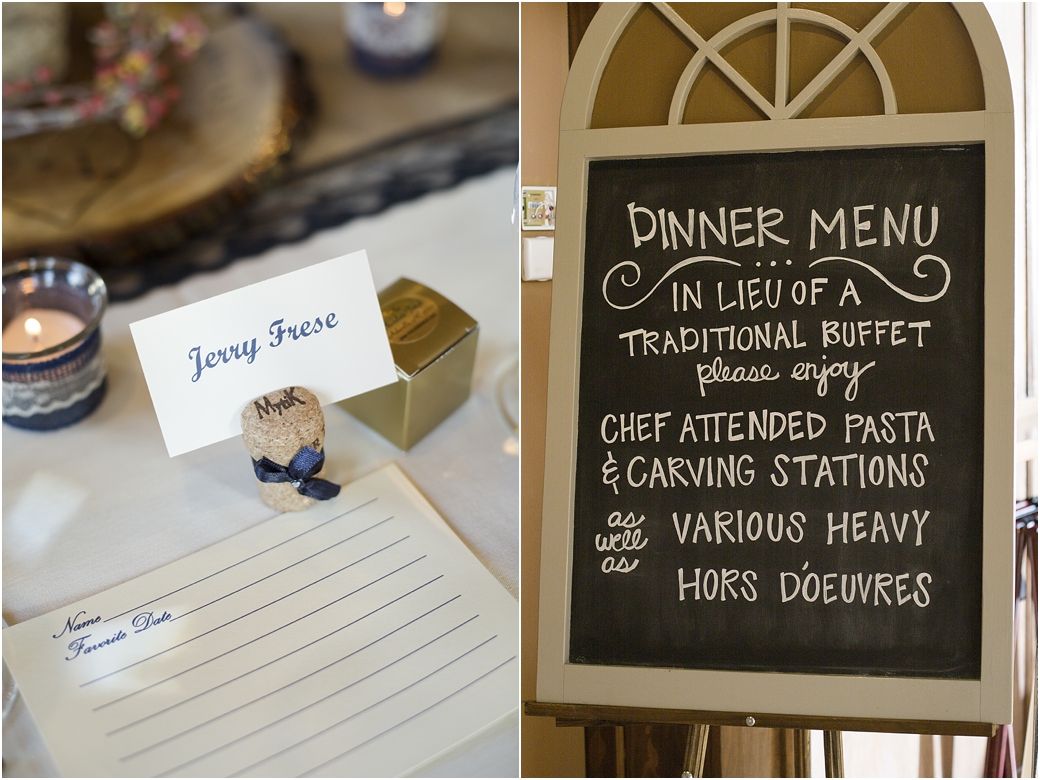 Jerry Frese
Mytik
Name
Favorite Date
DINNER MENU
IN LIEU OF A
TRADITIONAL BUFFET
please enjoy
CHEF ATTENDED PASTA
& CARVING STATIONS
as well as VARIOUS HEAVY
HORS D'OEUVRES